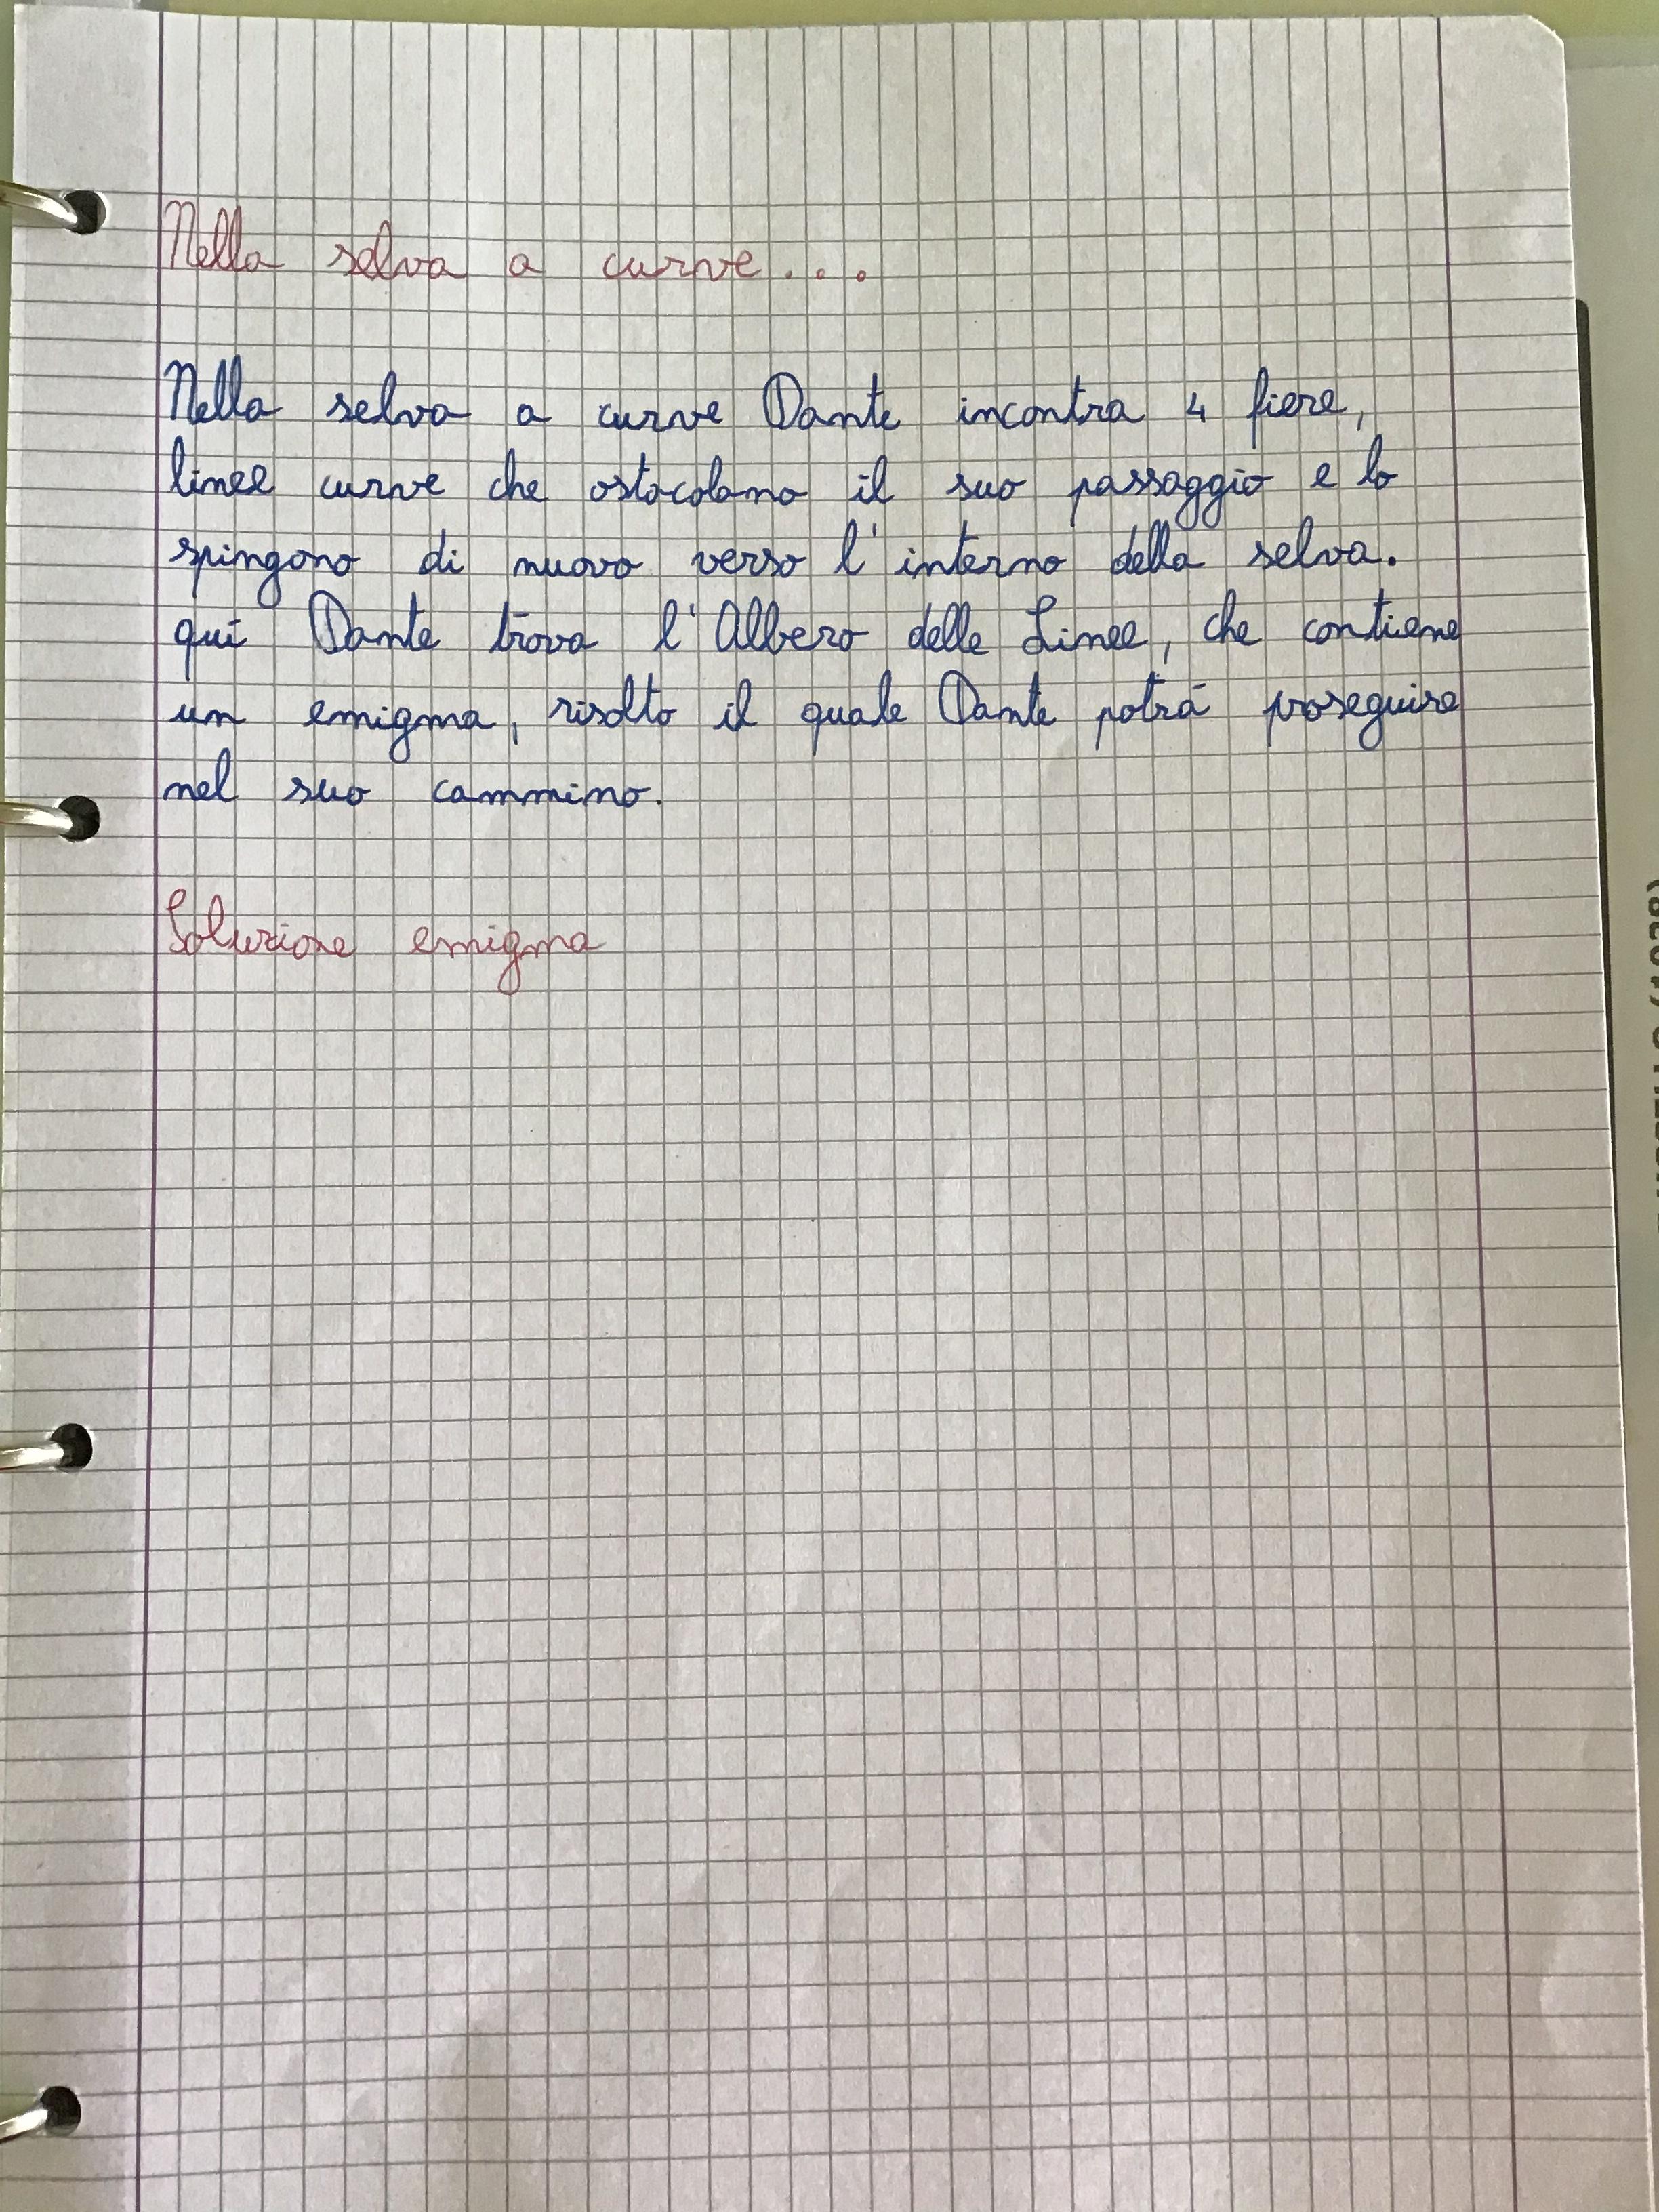 Nella selva a curve...
Nella selva a curve Dante incontra 4 fiere,
linee curve che ostacolano il suo passaggio e lo
spingono di nuovo verso l'interno della selva.
qui Dante trova l'Albero delle Linee, che contiene
un enigma, risolto il quale Dante potrà proseguire
nel suo cammino.
Soluzione enigma